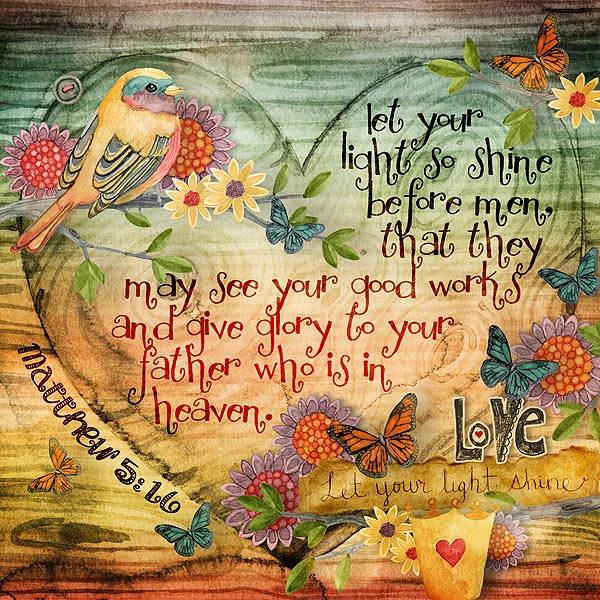 let your
light so shine
before men,
that they
may see your good works
and give glory to your
father who is in
heaven.
matthew 5:16
LOVE
Let your light shine